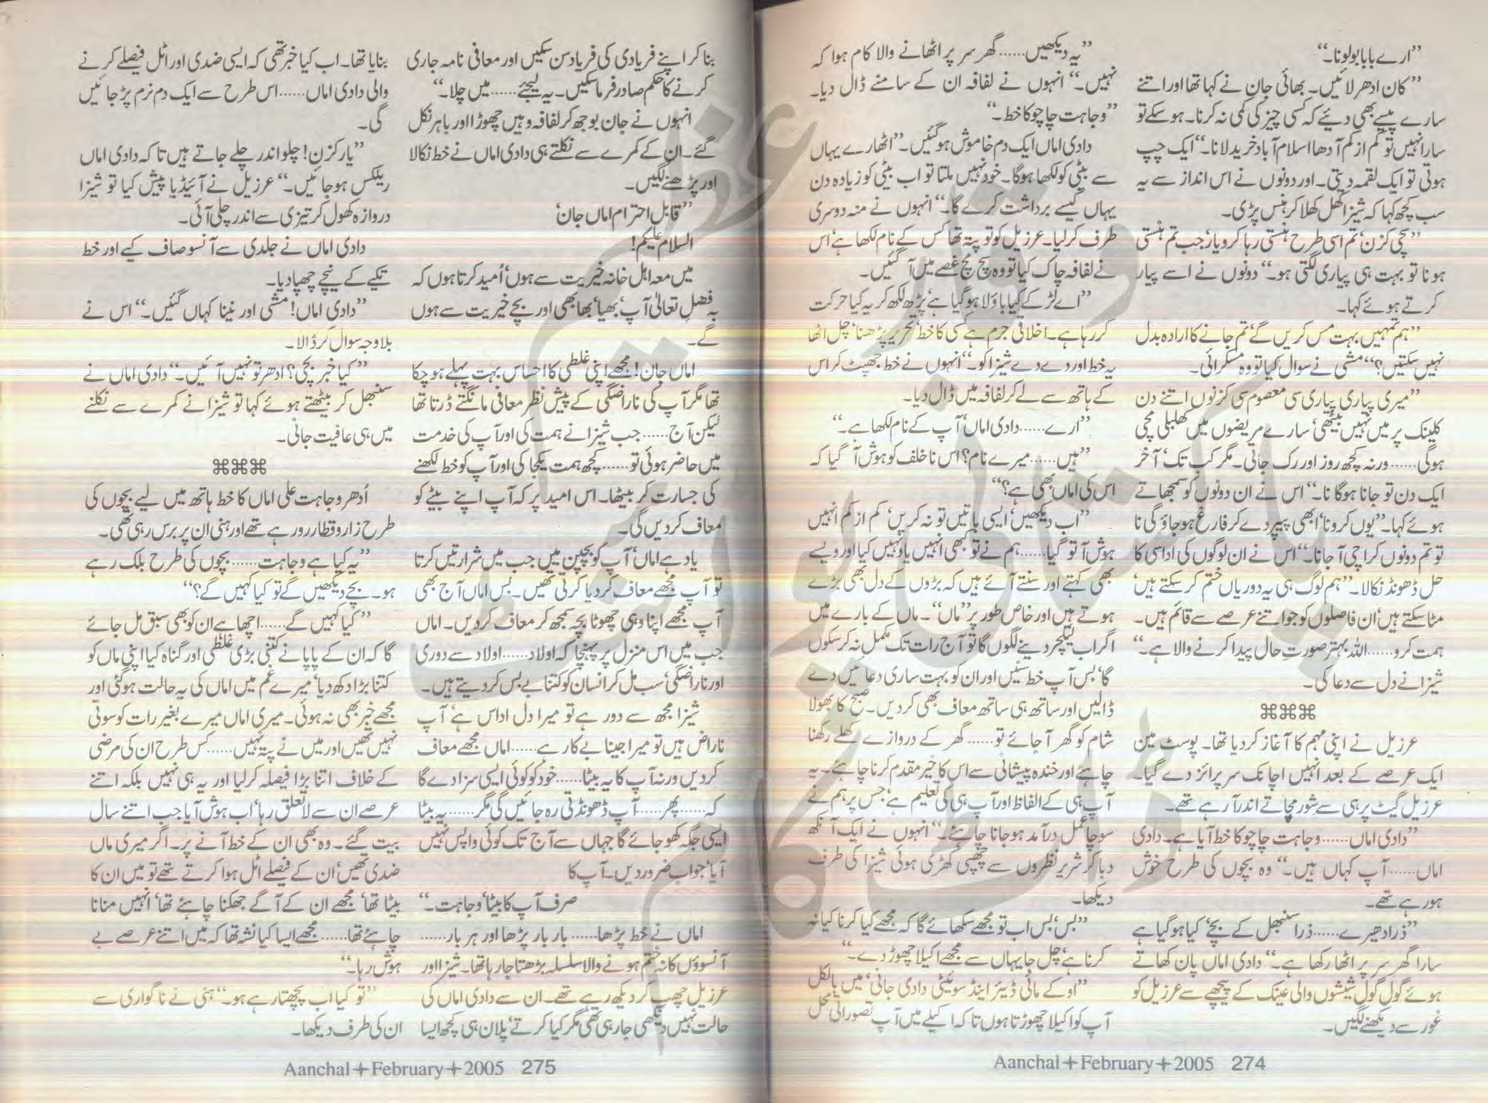 ”ارے بابا بولو نا۔“
”کان ادھر لائیں۔ بھائی جان نے کہا تھا اور اتنے
سارے پیسے بھی دیئے کہ کسی چیز کی کمی نہ کرنا۔ ہو سکے تو
سارا نہیں تو کم از کم آدھا اسلام آباد خرید لانا۔“ ایک چپ
ہوتی تو ایک لقمہ دیتی۔ اور دونوں نے اس انداز سے یہ
سب کچھ کہا کہ شیزا کھل کھلا کر ہنس پڑی۔
”سچی کزن، تم اسی طرح ہنستی رہا کرو یار، جب تم ہنستی
ہو نا تو بہت ہی پیاری لگتی ہو۔“ دونوں نے اسے پیار
کرتے ہوئے کہا۔
”ہم تمہیں بہت مس کریں گے، تم جانے کا ارادہ بدل
نہیں سکتیں؟“ مشی نے سوال کیا تو وہ مسکرائی۔
”میری پیاری پیاری سی معصوم سی کزنوں اتنے دن
کلینک پر میں نہیں بیٹھی، سارے مریضوں میں کھلبلی مچی
ہوگی...... ورنہ کچھ روز اور رک جاتی۔ مگر کب تک، آخر
ایک دن تو جانا ہوگا نا۔“ اس نے ان دونوں کو سمجھاتے
ہوئے کہا۔ ”یوں کرو نا، ابھی پیپر دے کر فارغ ہو جاؤ گی نا
تو تم دونوں کراچی آ جانا۔“ اس نے ان لوگوں کی اداسی کا
حل ڈھونڈ نکالا۔ ”ہم لوگ ہی یہ دوریاں ختم کر سکتے ہیں،
مٹا سکتے ہیں، ان فاصلوں کو جو اتنے عرصے سے قائم ہیں۔
ہمت کرو...... اللہ بہتر صورتِ حال پیدا کرنے والا ہے۔“
شیزا نے دل سے دعا کی۔
⌘⌘⌘
عزیل نے اپنی مہم کا آغاز کردیا تھا۔ پوسٹ مین
ایک عرصے کے بعد انہیں اچانک سرپرائز دے گیا۔
عزیل گیٹ پر ہی سے شور مچاتے اندر آ رہے تھے۔
”دادی اماں...... وجاہت چاچو کا خط آیا ہے۔ دادی
اماں...... آپ کہاں ہیں۔“ وہ بچوں کی طرح خوش
ہو رہے تھے۔
”ذرا دھیرے...... ذرا سنبھل کے بچے، کیا ہو گیا ہے
سارا گھر سر پر اٹھا رکھا ہے۔“ دادی اماں پان کھاتے
ہوئے گول گول شیشوں والی عینک کے پیچھے سے عزیل کو
غور سے دیکھنے لگیں۔
”یہ دیکھیں...... گھر سر پر اٹھانے والا کام ہوا کہ
نہیں۔“ انہوں نے لفافہ ان کے سامنے ڈال دیا۔
”وجاہت چاچو کا خط۔“
دادی اماں ایک دم خاموش ہو گئیں۔ ”اٹھا رے یہاں
سے بیٹی کو لکھا ہوگا۔ خود نہیں ملتا تو اب بیٹی کو زیادہ دن
یہاں کیسے برداشت کرے گا۔“ انہوں نے منہ دوسری
طرف کرلیا۔ عزیل کو تو پتہ تھا کس کے نام لکھا ہے، اس
نے لفافہ چاک کیا تو وہ سچ مچ غصے میں آ گئیں۔
”اے لڑکے کیا باؤلا ہو گیا ہے، پڑھ لکھ کر یہ کیا حرکت
کر رہا ہے۔ اخلاقی جرم ہے کسی کا خط، تحریر پڑھنا، چل اٹھا
یہ خط اور دے دے شیزا کو۔“ انہوں نے خط جھپٹ کر اس
کے ہاتھ سے لے کر لفافہ میں ڈال دیا۔
”ارے...... دادی اماں، آپ کے نام لکھا ہے۔“
”ہیں...... میرے نام؟ اس ناخلف کو ہوش آ گیا کہ
اس کی اماں بھی ہے؟“
”اب دیکھیں، ایسی باتیں تو نہ کریں، کم از کم انہیں
ہوش آ تو گیا...... ہم نے تو بھی انہیں یاد نہیں کیا اور ویسے
بھی کہتے اور سنتے آئے ہیں کہ بڑوں کے دل بھی بڑے
ہوتے ہیں اور خاص طور پر ”ماں“۔ ماں کے بارے میں
اگر اب لیکچر دینے لگوں گا تو آج رات تک مکمل نہ کرسکوں
گا، بس آپ خط سنیں اور ان کو بہت ساری دعائیں دے
ڈالیں اور ساتھ ہی ساتھ معاف بھی کردیں۔ صبح کا بھولا
شام کو گھر آ جائے تو...... گھر کے دروازے کھلے رکھنا
چاہئے اور خندہ پیشانی سے اس کا خیر مقدم کرنا چاہئے۔ یہ
آپ ہی کے الفاظ اور آپ ہی کی تعلیم ہے، جس پر ہم نے
سوچا عمل درآمد ہو جانا چاہئے۔“ انہوں نے ایک آنکھ
دبا کر شریر نظروں سے چھپی کھڑی ہوئی شیزا کی طرف
دیکھا۔
”بس، بس اب تو مجھے سکھائے گا کہ مجھے کیا کرنا کیا نہ
کرنا ہے، چل جا یہاں سے مجھے اکیلا چھوڑ دے۔“
”او کے مائی ڈیئر اینڈ سوئیٹی دادی جانی، میں بالکل
آپ کو اکیلا چھوڑتا ہوں تاکہ اکیلے میں آپ تصوراتی محل
Aanchal+February+2005 274
بنا کر اپنے فریادی کی فریاد سن سکیں اور معافی نامہ جاری
کرنے کا حکم صادر فرما سکیں۔ یہ لیجئے...... میں چلا۔“
انہوں نے جان بوجھ کر لفافہ وہیں چھوڑا اور باہر نکل
گئے۔ ان کے کمرے سے نکلتے ہی دادی اماں نے خط نکالا
اور پڑھنے لگیں۔
”قابلِ احترام اماں جان،
السلام علیکم!
میں معہ اہل خانہ خیریت سے ہوں، اُمید کرتا ہوں کہ
بہ فضل تعالیٰ آپ، بھیا، بھابھی اور بچے خیریت سے ہوں
گے۔
اماں جان! مجھے اپنی غلطی کا احساس بہت پہلے ہو چکا
تھا مگر آپ کی ناراضگی کے پیش نظر معافی مانگتے ڈرتا تھا
لیکن آج...... جب شیزا نے ہمت کی اور آپ کی خدمت
میں حاضر ہوئی تو...... کچھ ہمت یکجا کی اور آپ کو خط لکھنے
کی جسارت کر بیٹھا۔ اس امید پر کہ آپ اپنے بیٹے کو
معاف کردیں گی۔
یاد ہے اماں، آپ کو بچپن میں جب میں شرارتیں کرتا
تو آپ مجھے معاف کر دیا کرتی تھیں۔ بس اماں آج بھی
آپ مجھے اپنا وہی چھوٹا بچہ سمجھ کر معاف کردیں۔ اماں
جب میں اس منزل پر پہنچا کہ اولاد...... اولاد سے دوری
اور ناراضگی، سب مل کر انسان کو کتنا بے بس کردیتے ہیں۔
شیزا مجھ سے دور ہے تو میرا دل اداس ہے، آپ
ناراض ہیں تو میرا جینا بے کار ہے...... اماں مجھے معاف
کردیں ورنہ آپ کا یہ بیٹا...... خود کو کوئی ایسی سزا دے گا
کہ...... پھر...... آپ ڈھونڈتی رہ جائیں گی مگر...... یہ بیٹا
ایسی جگہ کھو جائے گا جہاں سے آج تک کوئی واپس نہیں
آیا، جواب ضرور دیں۔ آپ کا
صرف آپ کا بیٹا، وجاہت۔“
اماں نے خط پڑھا...... بار بار پڑھا اور ہر بار......
آنسوؤں کا نہ ختم ہونے والا سلسلہ بڑھتا جا رہا تھا۔ شیزا اور
عزیل چھپ کر دیکھ رہے تھے۔ ان سے دادی اماں کی
حالت نہیں دیکھی جا رہی تھی مگر کیا کرتے، پلان ہی کچھ ایسا
بنایا تھا۔ اب کیا خبر تھی کہ ایسی ضدی اور اٹل فیصلے کرنے
والی دادی اماں...... اس طرح سے ایک دم نرم پڑ جائیں
گی۔
”یار کزن! چلو اندر چلے جاتے ہیں تاکہ دادی اماں
ریلکس ہو جائیں۔“ عزیل نے آئیڈیا پیش کیا تو شیزا
دروازہ کھول کر تیزی سے اندر چلی آئی۔
دادی اماں نے جلدی سے آنسو صاف کیے اور خط
تکیے کے نیچے چھپا دیا۔
”دادی اماں! مشی اور نینا کہاں گئیں۔“ اس نے
بلاوجہ سوال کر ڈالا۔
”کیا خبر بچی؟ ادھر تو نہیں آئیں۔“ دادی اماں نے
سنبھل کر بیٹھتے ہوئے کہا تو شیزا نے کمرے سے نکلنے
میں ہی عافیت جانی۔
⌘⌘⌘
اُدھر وجاہت علی اماں کا خط ہاتھ میں لیے بچوں کی
طرح زار و قطار رو رہے تھے اور ہنی ان پر برس رہی تھی۔
”یہ کیا ہے وجاہت...... بچوں کی طرح بلک رہے
ہو۔ بچے دیکھیں گے تو کیا کہیں گے؟“
”کیا کہیں گے...... اچھا ہے ان کو بھی سبق مل جائے
گا کہ ان کے پاپا نے کتنی بڑی غلطی اور گناہ کیا اپنی ماں کو
کتنا بڑا دکھ دیا، میرے غم میں اماں کی یہ حالت ہوگئی اور
مجھے خبر بھی نہ ہوئی۔ میری اماں میرے بغیر رات کو سوتی
نہیں تھیں اور میں نے پتہ نہیں...... کس طرح ان کی مرضی
کے خلاف اتنا بڑا فیصلہ کرلیا اور یہ ہی نہیں بلکہ اتنے
عرصے ان سے لاتعلق رہا، اب ہوش آیا جب اتنے سال
بیت گئے۔ وہ بھی ان کے خط آنے پر۔ اگر میری ماں
ضدی تھیں، ان کے فیصلے اٹل ہوا کرتے تھے تو میں ان کا
بیٹا تھا، مجھے ان کے آگے جھکنا چاہئے تھا، انہیں منانا
چاہئے تھا...... مجھے ایسا کیا نشہ تھا کہ میں اتنے عرصے بے
ہوش رہا۔“
”تو کیا اب پچھتا رہے ہو۔“ ہنی نے ناگواری سے
ان کی طرف دیکھا۔
Aanchal+February+2005 275